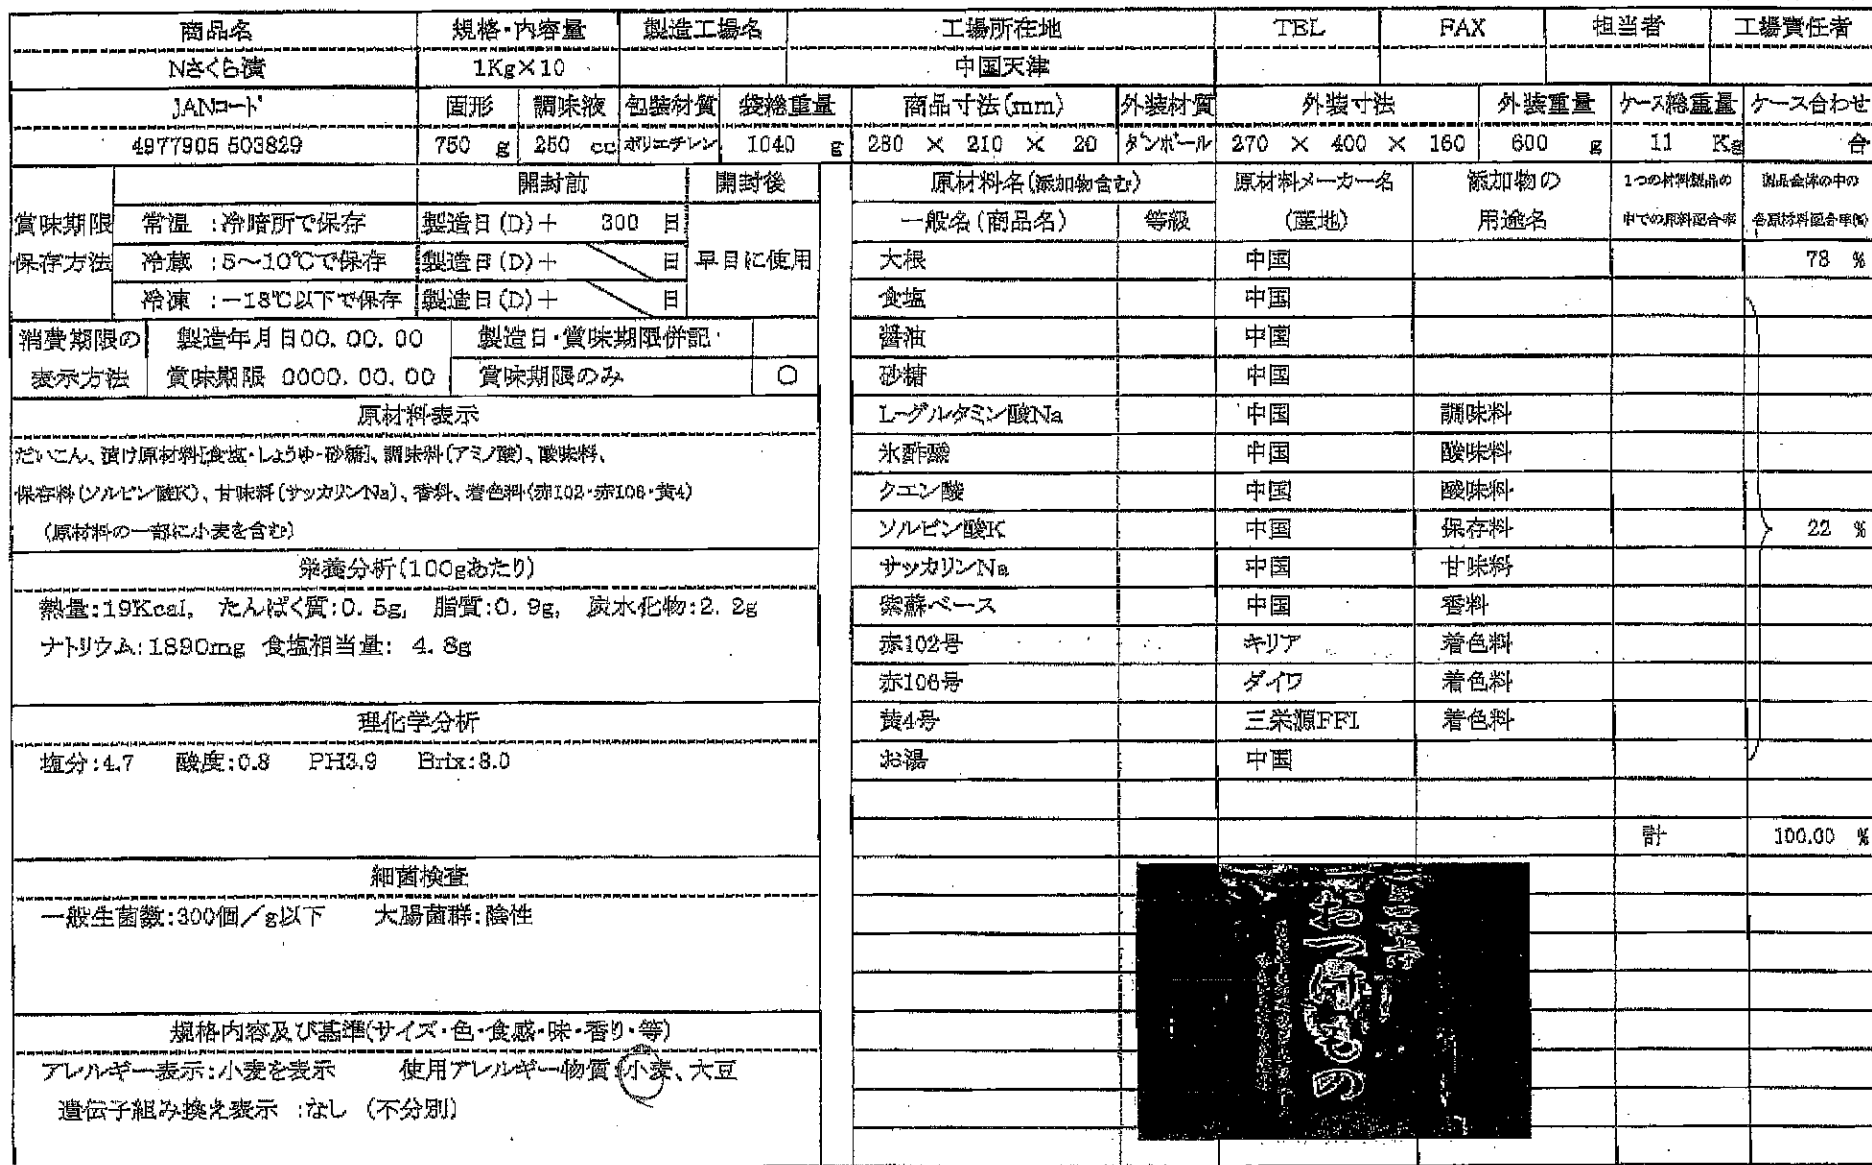 商品名 規格・内容量 製造工場名 工場所在地 TEL FAX 担当者 工場責任者
Nさくら漬 1Kg×10 中国天津
JANコード 固形 調味液 包装材質 袋総重量 商品寸法(mm) 外装材質 外装寸法 外装重量 ケース総重量 ケース合わせ
4977905 503829 750 g 250 cc ポリエチレン 1040 g 280 × 210 × 20 ダンボール 270 × 400 × 160 600 g 11 Kg 合
開封前 開封後
賞味期限 常温 :冷暗所で保存 製造日(D)+ 300 日
保存方法 冷蔵 :5～10℃で保存 製造日(D)+ 日 早目に使用
冷凍 :－18℃以下で保存 製造日(D)+ 日
消費期限の 製造年月日00. 00. 00 製造日・賞味期限併記
表示方法 賞味期限 0000. 00. 00 賞味期限のみ ○
原材料表示
だいこん、漬け原材料[食塩・しょうゆ・砂糖]、調味料(アミノ酸)、酸味料、
保存料(ソルビン酸K)、甘味料(サッカリンNa)、香料、着色料(赤102・赤106・黄4)
(原材料の一部に小麦を含む)
栄養分析(100gあたり)
熱量:19Kcal, たんぱく質:0. 5g, 脂質:0. 9g, 炭水化物:2. 2g
ナトリウム:1890mg 食塩相当量: 4. 8g
理化学分析
塩分:4.7 酸度:0.8 PH3.9 Brix:8.0
細菌検査
一般生菌数:300個/g以下 大腸菌群:陰性
規格内容及び基準(サイズ・色・食感・味・香り・等)
アレルギー表示:小麦を表示 使用アレルギー物質:小麦、大豆
遺伝子組み換え表示 :なし (不分別)
原材料名(添加物含む) 原材料メーカー名 添加物の 1つの材料製品の 製品全体の中の
一般名(商品名) 等級 (産地) 用途名 中での原料配合率 各原材料配合率(%)
大根 中国 78 %
食塩 中国
醤油 中国
砂糖 中国
L-グルタミン酸Na 中国 調味料
氷酢酸 中国 酸味料
クエン酸 中国 酸味料
ソルビン酸K 中国 保存料 22 %
サッカリンNa 中国 甘味料
紫蘇ベース 中国 香料
赤102号 キリア 着色料
赤106号 ダイワ 着色料
黄4号 三栄源FFI 着色料
お湯 中国
計 100.00 %
おつけもの